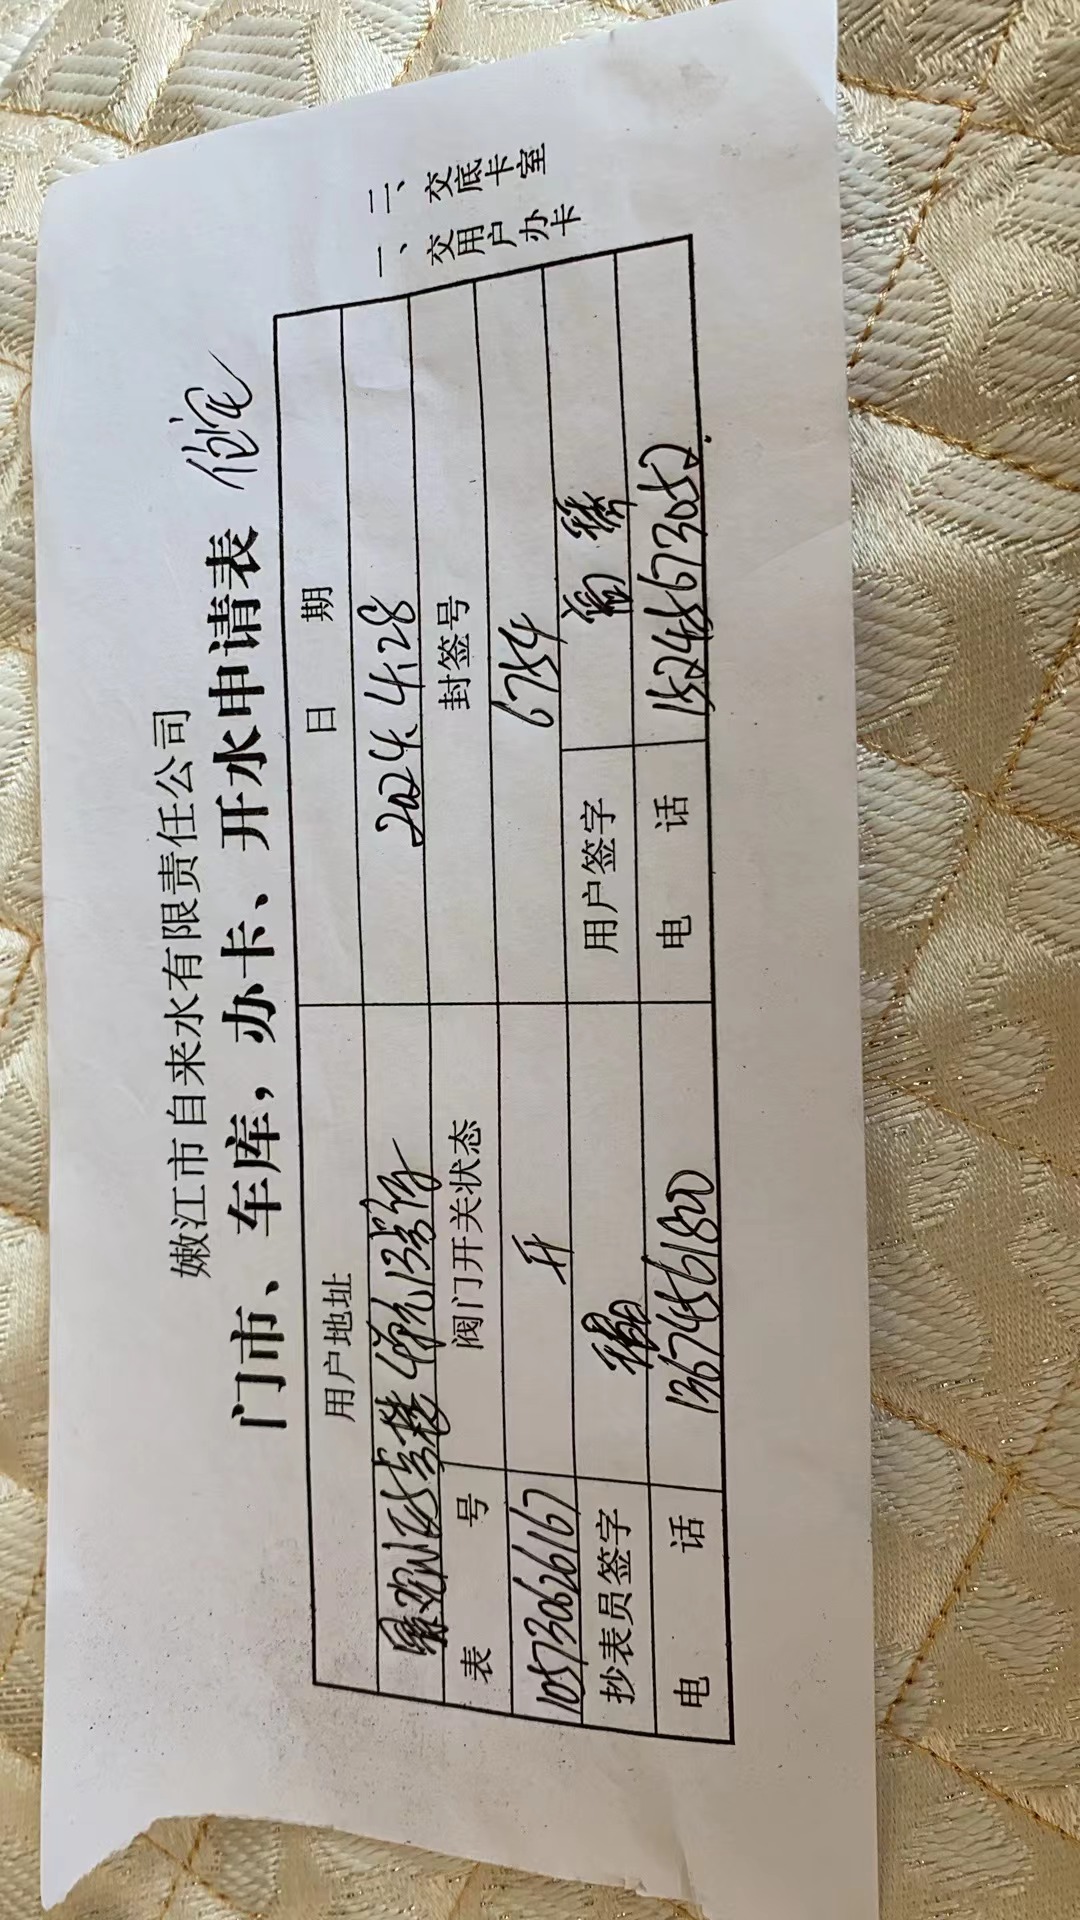 嫩江市自来水有限责任公司
门市、车库，办卡、开水申请表 住宅
用户地址 日 期
2024.4.28
表 号 阀门开关状态 封签号
105730626167 开 6754
抄表员签字 用户签字
电 话 13674561800 电 话 15245673052
一、交用户办卡
二、交底卡室